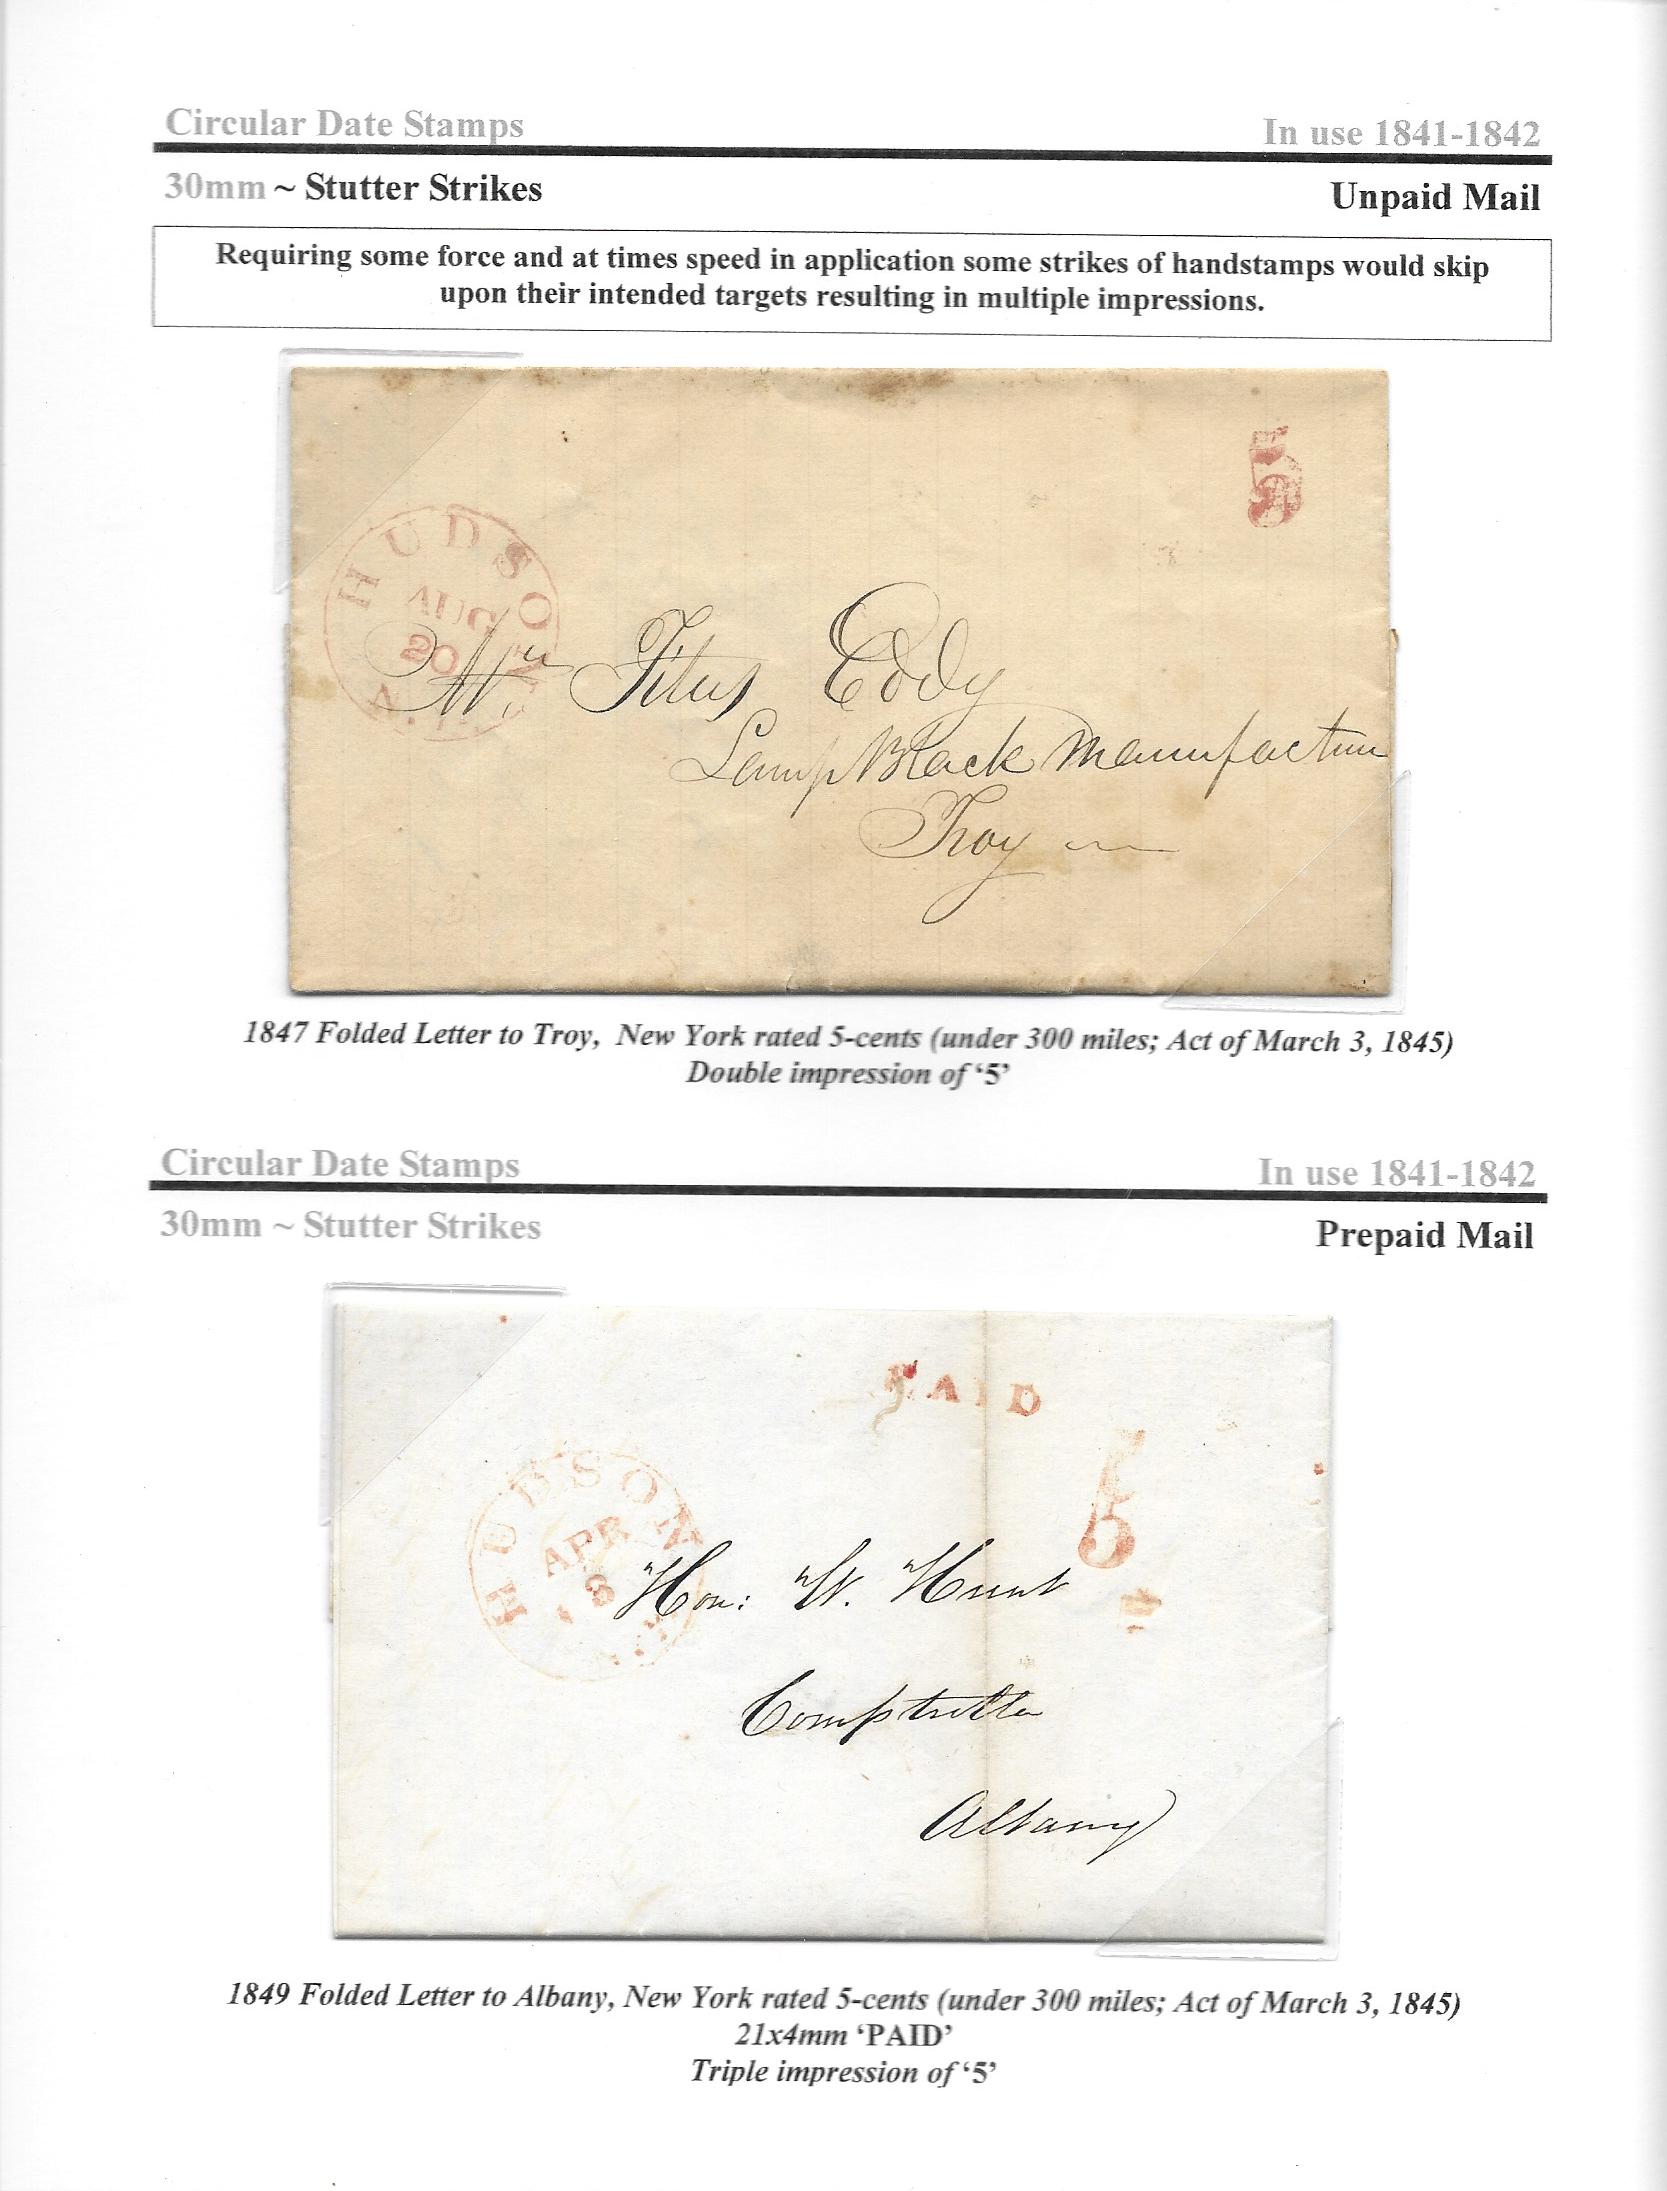 Circular Date Stamps
In use 1841-1842
30mm ~ Stutter Strikes
Unpaid Mail
Requiring some force and at times speed in application some strikes of handstamps would skip
upon their intended targets resulting in multiple impressions.
5
HUDSON
AUG
20
N.Y.
Mr Titus Eddy
Lamp Black Manufactur
Troy
1847 Folded Letter to Troy, New York rated 5-cents (under 300 miles; Act of March 3, 1845)
Double impression of ‘5’
Circular Date Stamps
In use 1841-1842
30mm ~ Stutter Strikes
Prepaid Mail
PAID
5
HUDSON
APR
N.Y.
Hon: W. Hunt
Comptroller
Albany
1849 Folded Letter to Albany, New York rated 5-cents (under 300 miles; Act of March 3, 1845)
21x4mm ‘PAID’
Triple impression of ‘5’